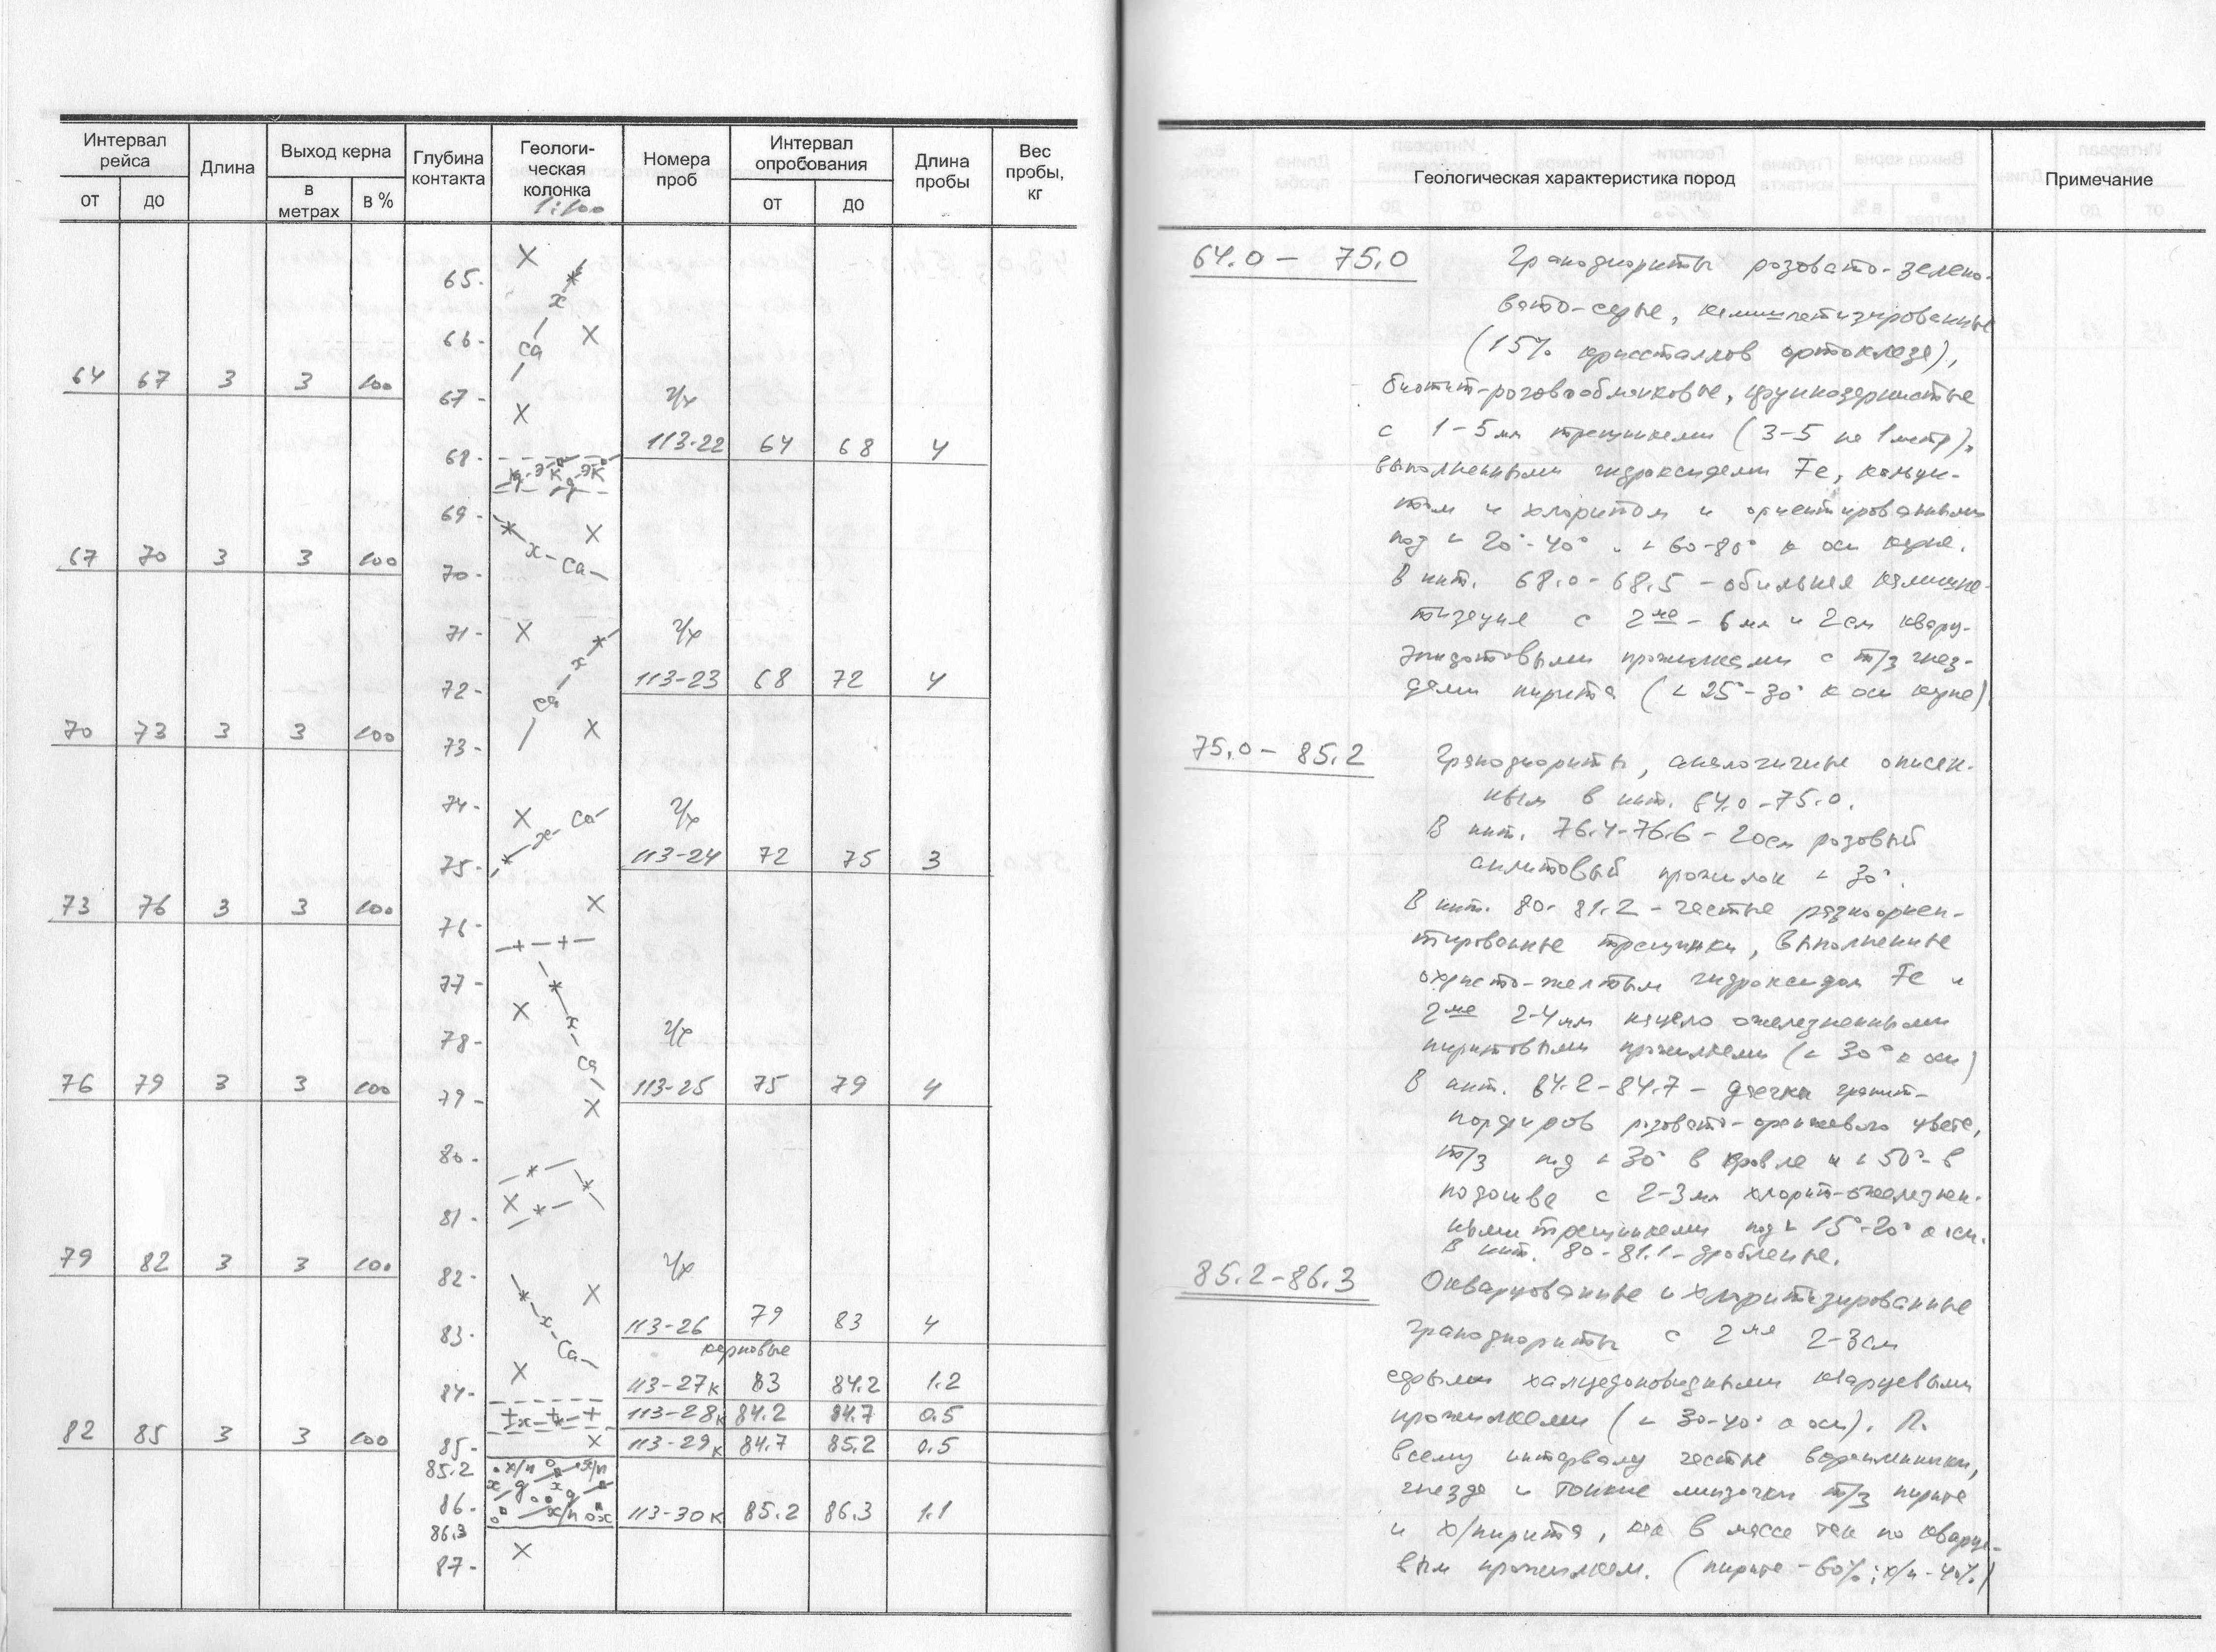 Интервал рейса Длина Выход керна Глубина контакта Геологи-ческая колонка 1:100 Номера проб Интервал опробования Длина пробы Вес пробы, кг
от до в метрах в % от до
65-
66-
Ca
64 67 3 3 100
67- ч/х
113-22 64 68 4
68-
69-
67 70 3 3 100
x-Ca-
70-
71- ч/х
72- 113-23 68 72 4
Ca
70 73 3 3 100
73-
74- ч/х
x- Ca-
75- 113-24 72 75 3
73 76 3 3 100
76-
-+-+-
77-
78- ч/х
Ca
76 79 3 3 100
79- 113-25 75 79 4
80-
81-
79 82 3 3 100
82- ч/х
83- 113-26 79 83 4
Ca- керновые
84- 113-27к 83 84.2 1.2
113-28к 84.2 84.7 0.5
82 85 3 3 100
85- 113-29к 84.7 85.2 0.5
85.2
86- 113-30к 85.2 86.3 1.1
86.3
87-
Геологическая характеристика пород Примечание
64.0 - 75.0 Гранодиориты розовато-зелено-
вато-серые, калишпатизированные
(15% кристаллов ортоклаза),
биотит-роговообманковые, крупнозернистые
с 1-5мм трещинками (3-5 на 1 метр),
выполненными гидроксидами Fe, кальци-
том и хлоритом и ориентированными
под ∟ 20°-40° и ∟ 60-80° к оси керна.
В инт. 68.0-68.5 - обильная калишпа-
тизация с 2мя - 6мм и 2см кварц-
эпидотовыми прожилками с т/з гнез-
дами пирита (∟ 25°-30° к оси керна)
75.0 - 85.2 Гранодиориты, аналогичные описан-
ным в инт. 64.0-75.0.
В инт. 76.4-76.6 - 20см розовый
аплитовый прожилок ∟ 30°.
В инт. 80-81.2 - частые разноориен-
тированные трещинки, выполненные
охристо-желтым гидроксидом Fe и
2мя 2-4мм нацело ожелезненными
пиритовыми прожилками (∟ 30° к оси)
В инт. 84.2-84.7 - даечка гранит-
порфиров розовато-оранжевого цвета,
т/з под ∟ 30° в кровле и ∟ 50° в
подошве с 2-3мм хлорит-ожелезнен-
ными трещинками под ∟ 15°-20° к оси.
В инт. 80-81.1 - дробление.
85.2-86.3 Окварцованные и хлоритизированные
гранодиориты с 2мя 2-3см
серыми халцедоновидными кварцевыми
прожилками (∟ 30-40° к оси). По
всему интервалу частые вкрапленники,
гнезда и тонкие линзочки т/з пирита
и х/пирита, как в массе так и по кварце-
вым прожилкам. (пирита - 60%; х/п - 40%)